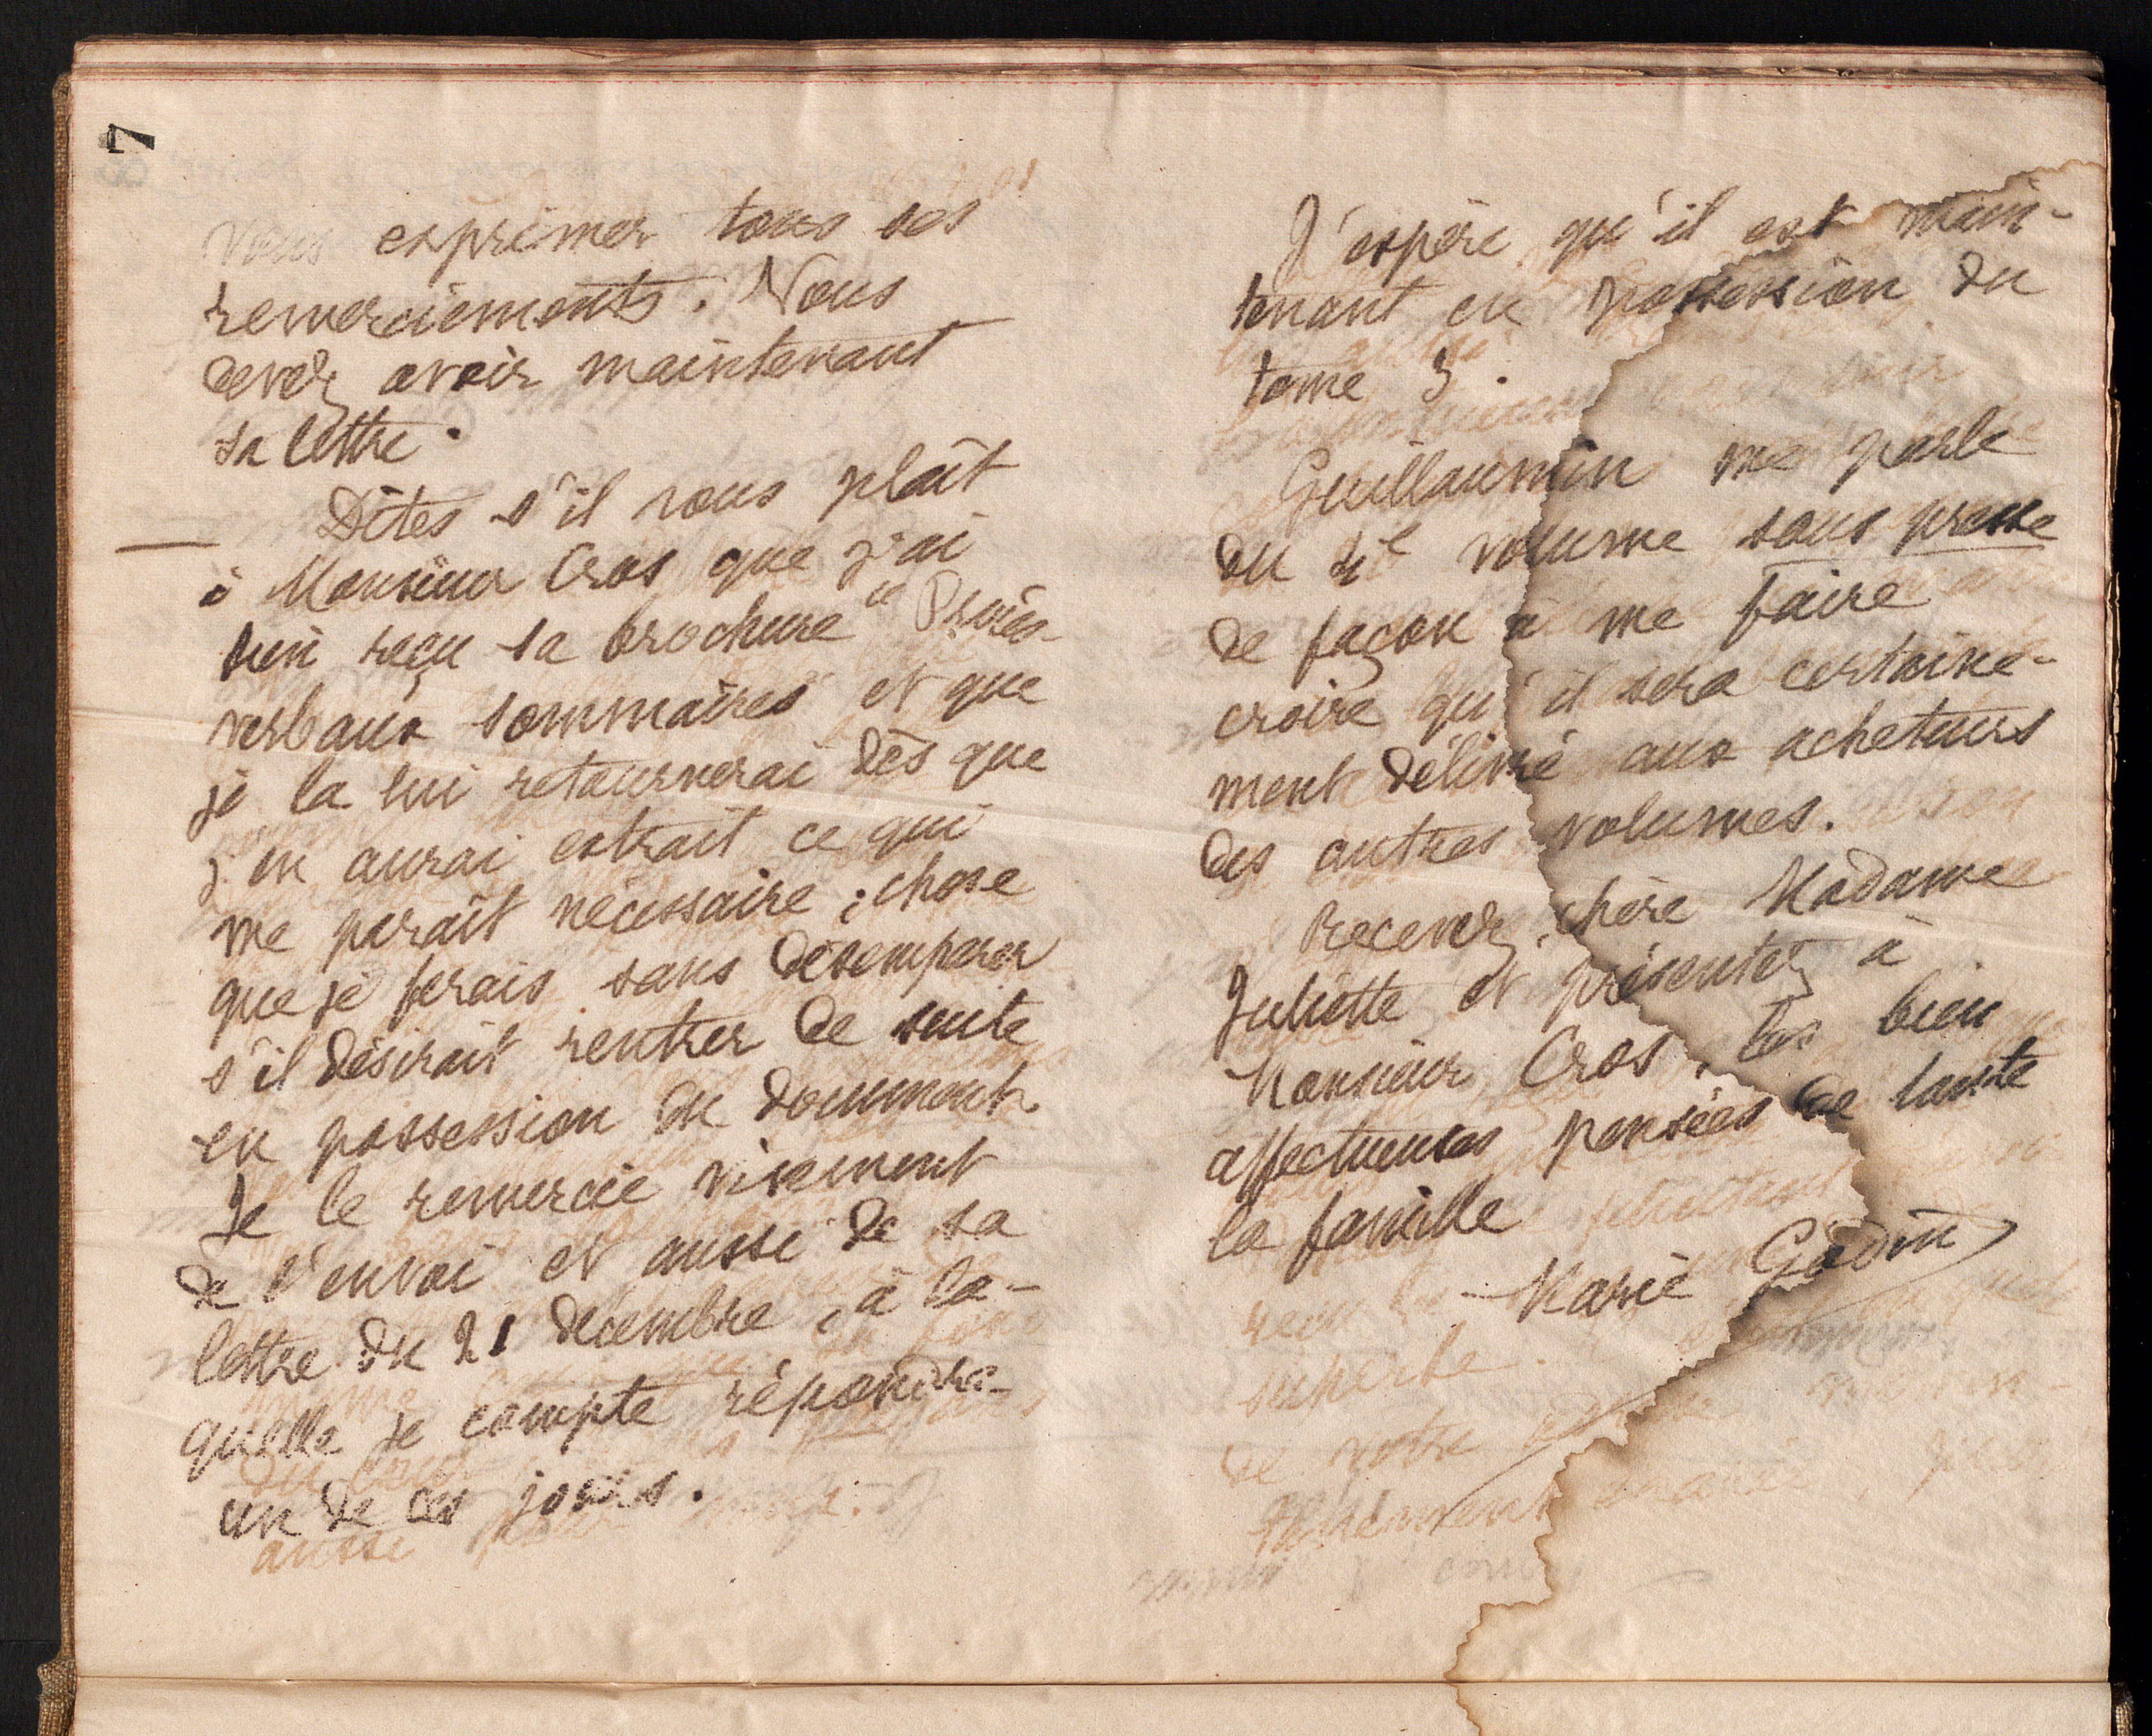 7
vous exprimer tous ses
remerciements. Vous
devez avoir maintenant
sa lettre.
Dites s'il vous plaît
à Monsieur Cros que j'ai
bien reçu sa brochure "Procès-
verbaux sommaires" et que
je la lui retournerai dès que
j'en aurai extrait ce qui
me paraît nécessaire ; chose
que je ferais sans désemparer
s'il désirait rentrer de suite
en possession du document.
Je le remercie vivement
de l'envoi et aussi de sa
lettre du 21 décembre, à la-
quelle je compte répondre
un de ces jours.
J'espère qu'il est main-
tenant en possession du
tome 3.
Guillaumin me parle
du 4e volume sous presse
de façon à me faire
croire qu'il sera certaine-
ment délivré aux acheteurs
des autres volumes.
Recevez, chère Madame
Juliette et présentez à
Monsieur Cros, les bien
affectueuses pensées de toute
la famille
Marie Godin